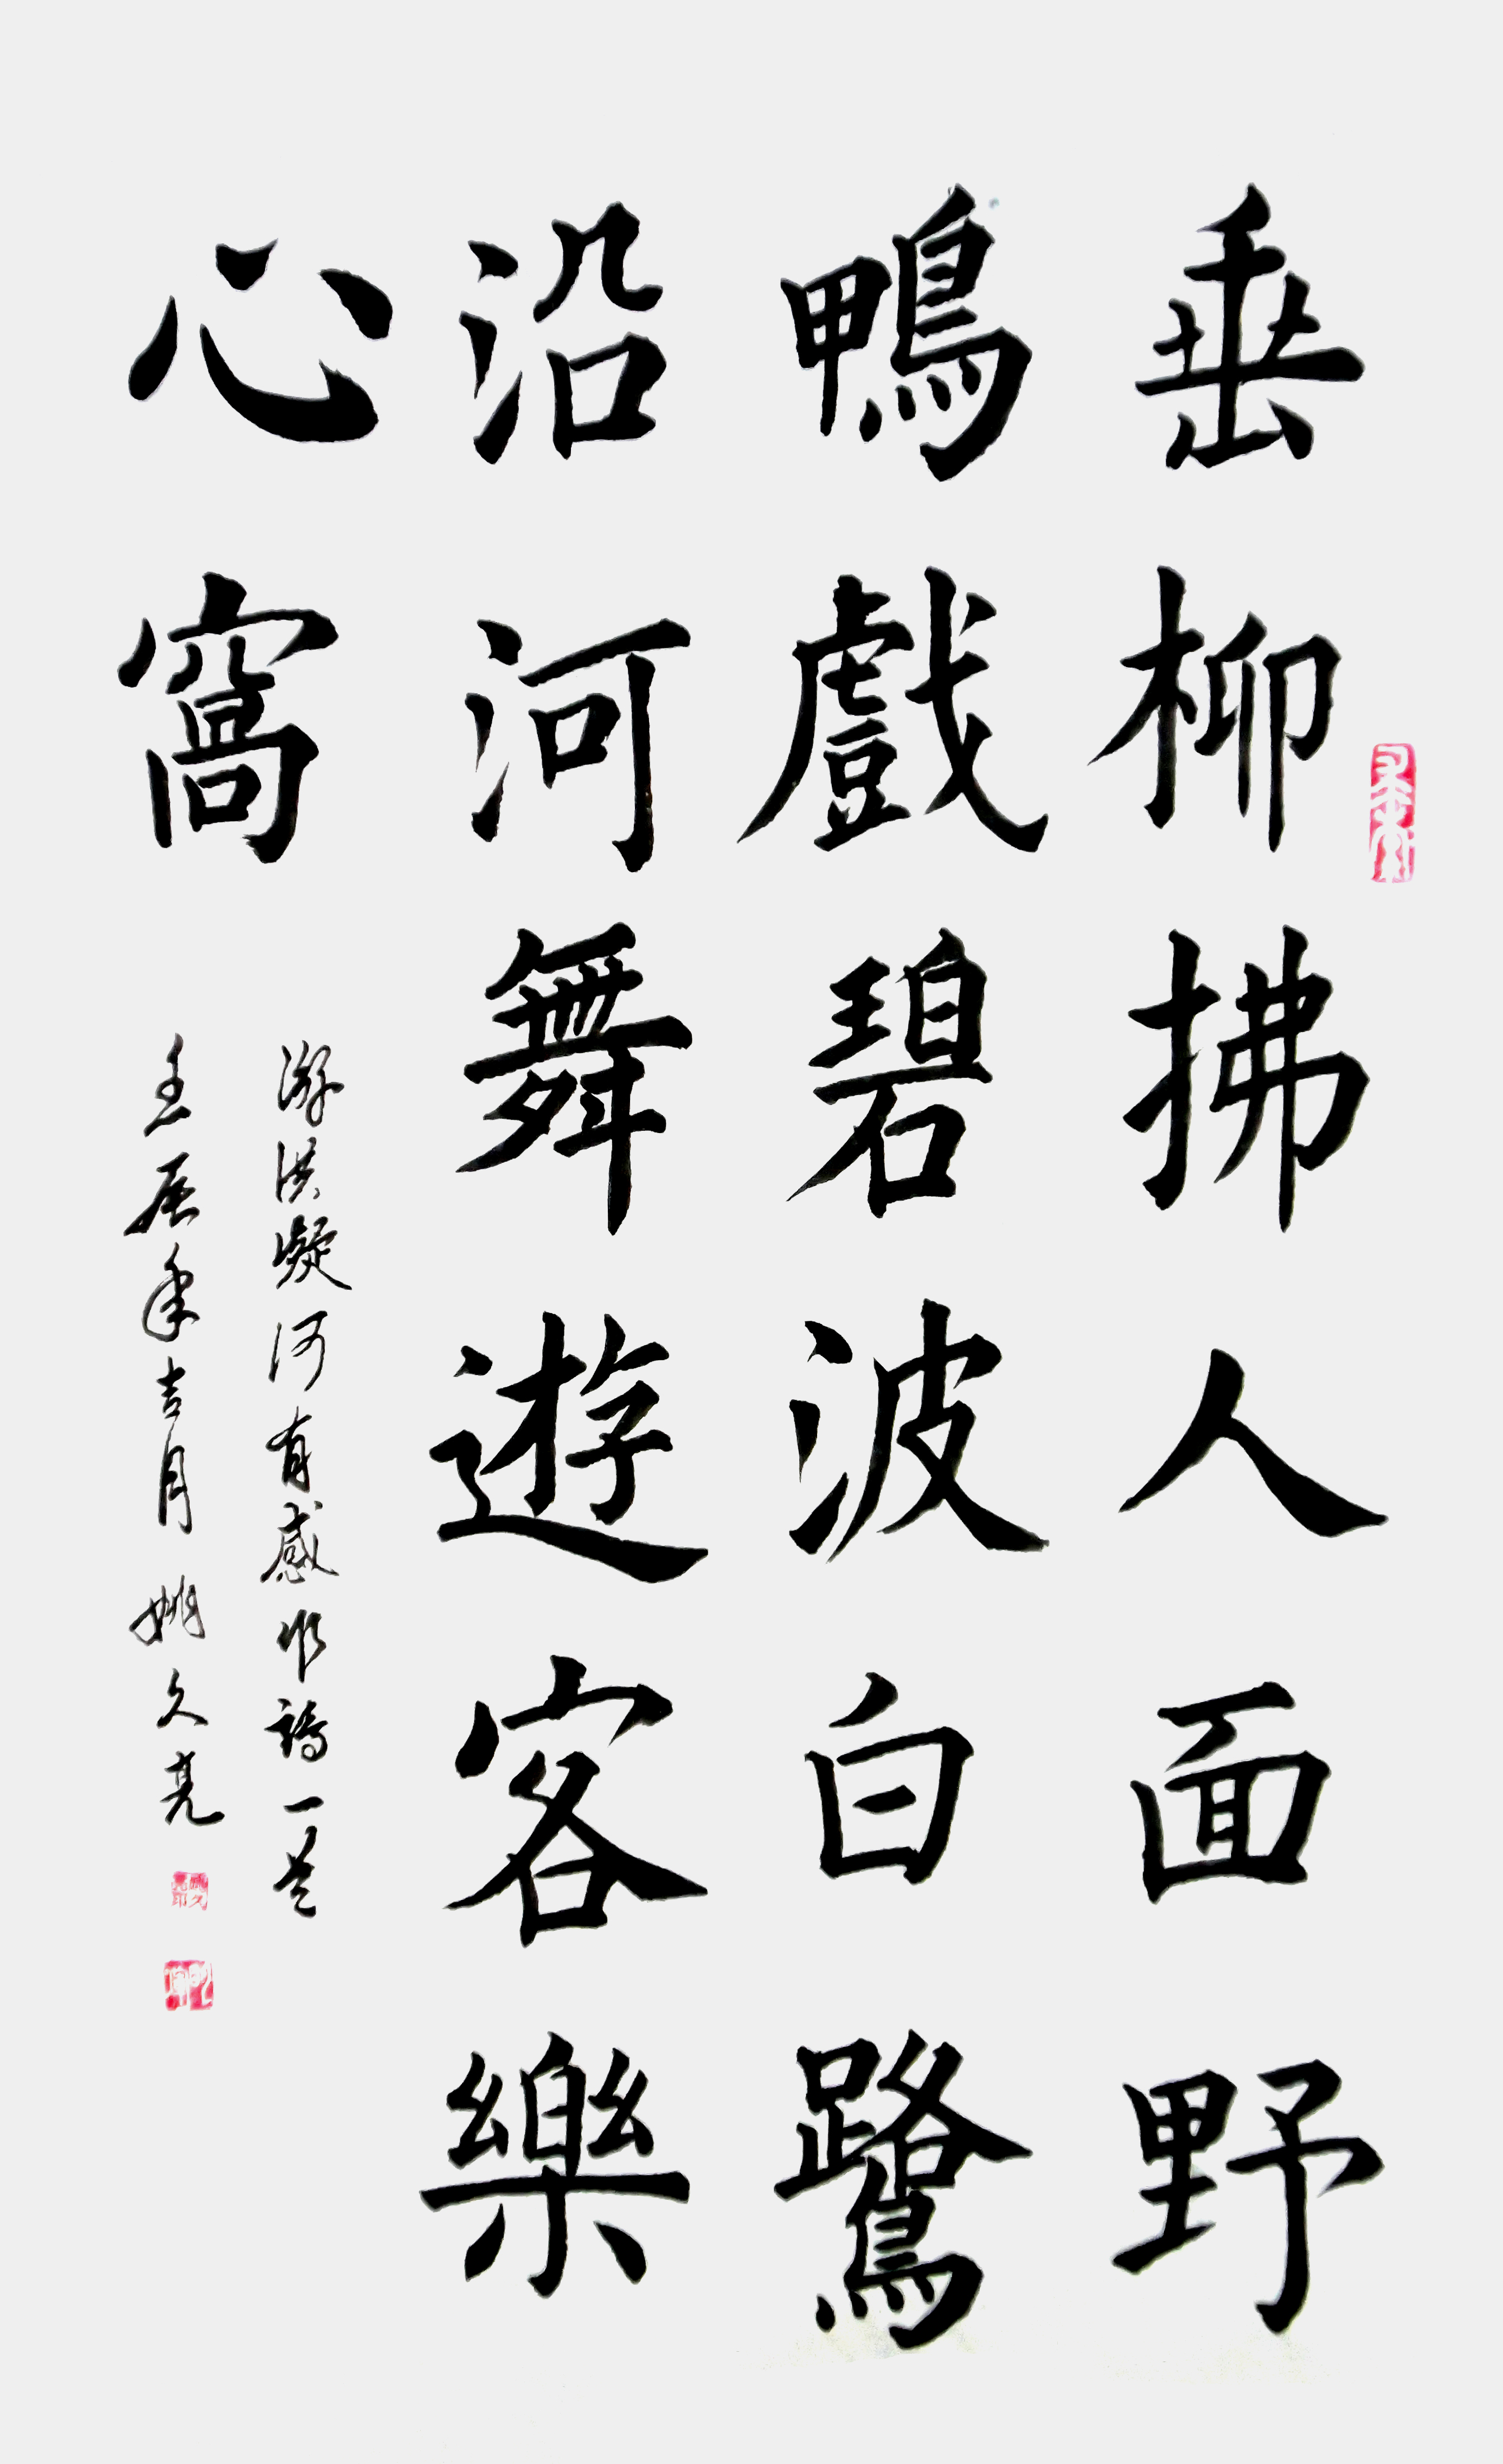 垂柳拂人面野
鴨戲碧波白鷺
沿河舞遊客樂
心窩
游洪凝河有感作詩一首
壬辰年吉月 姚久亮